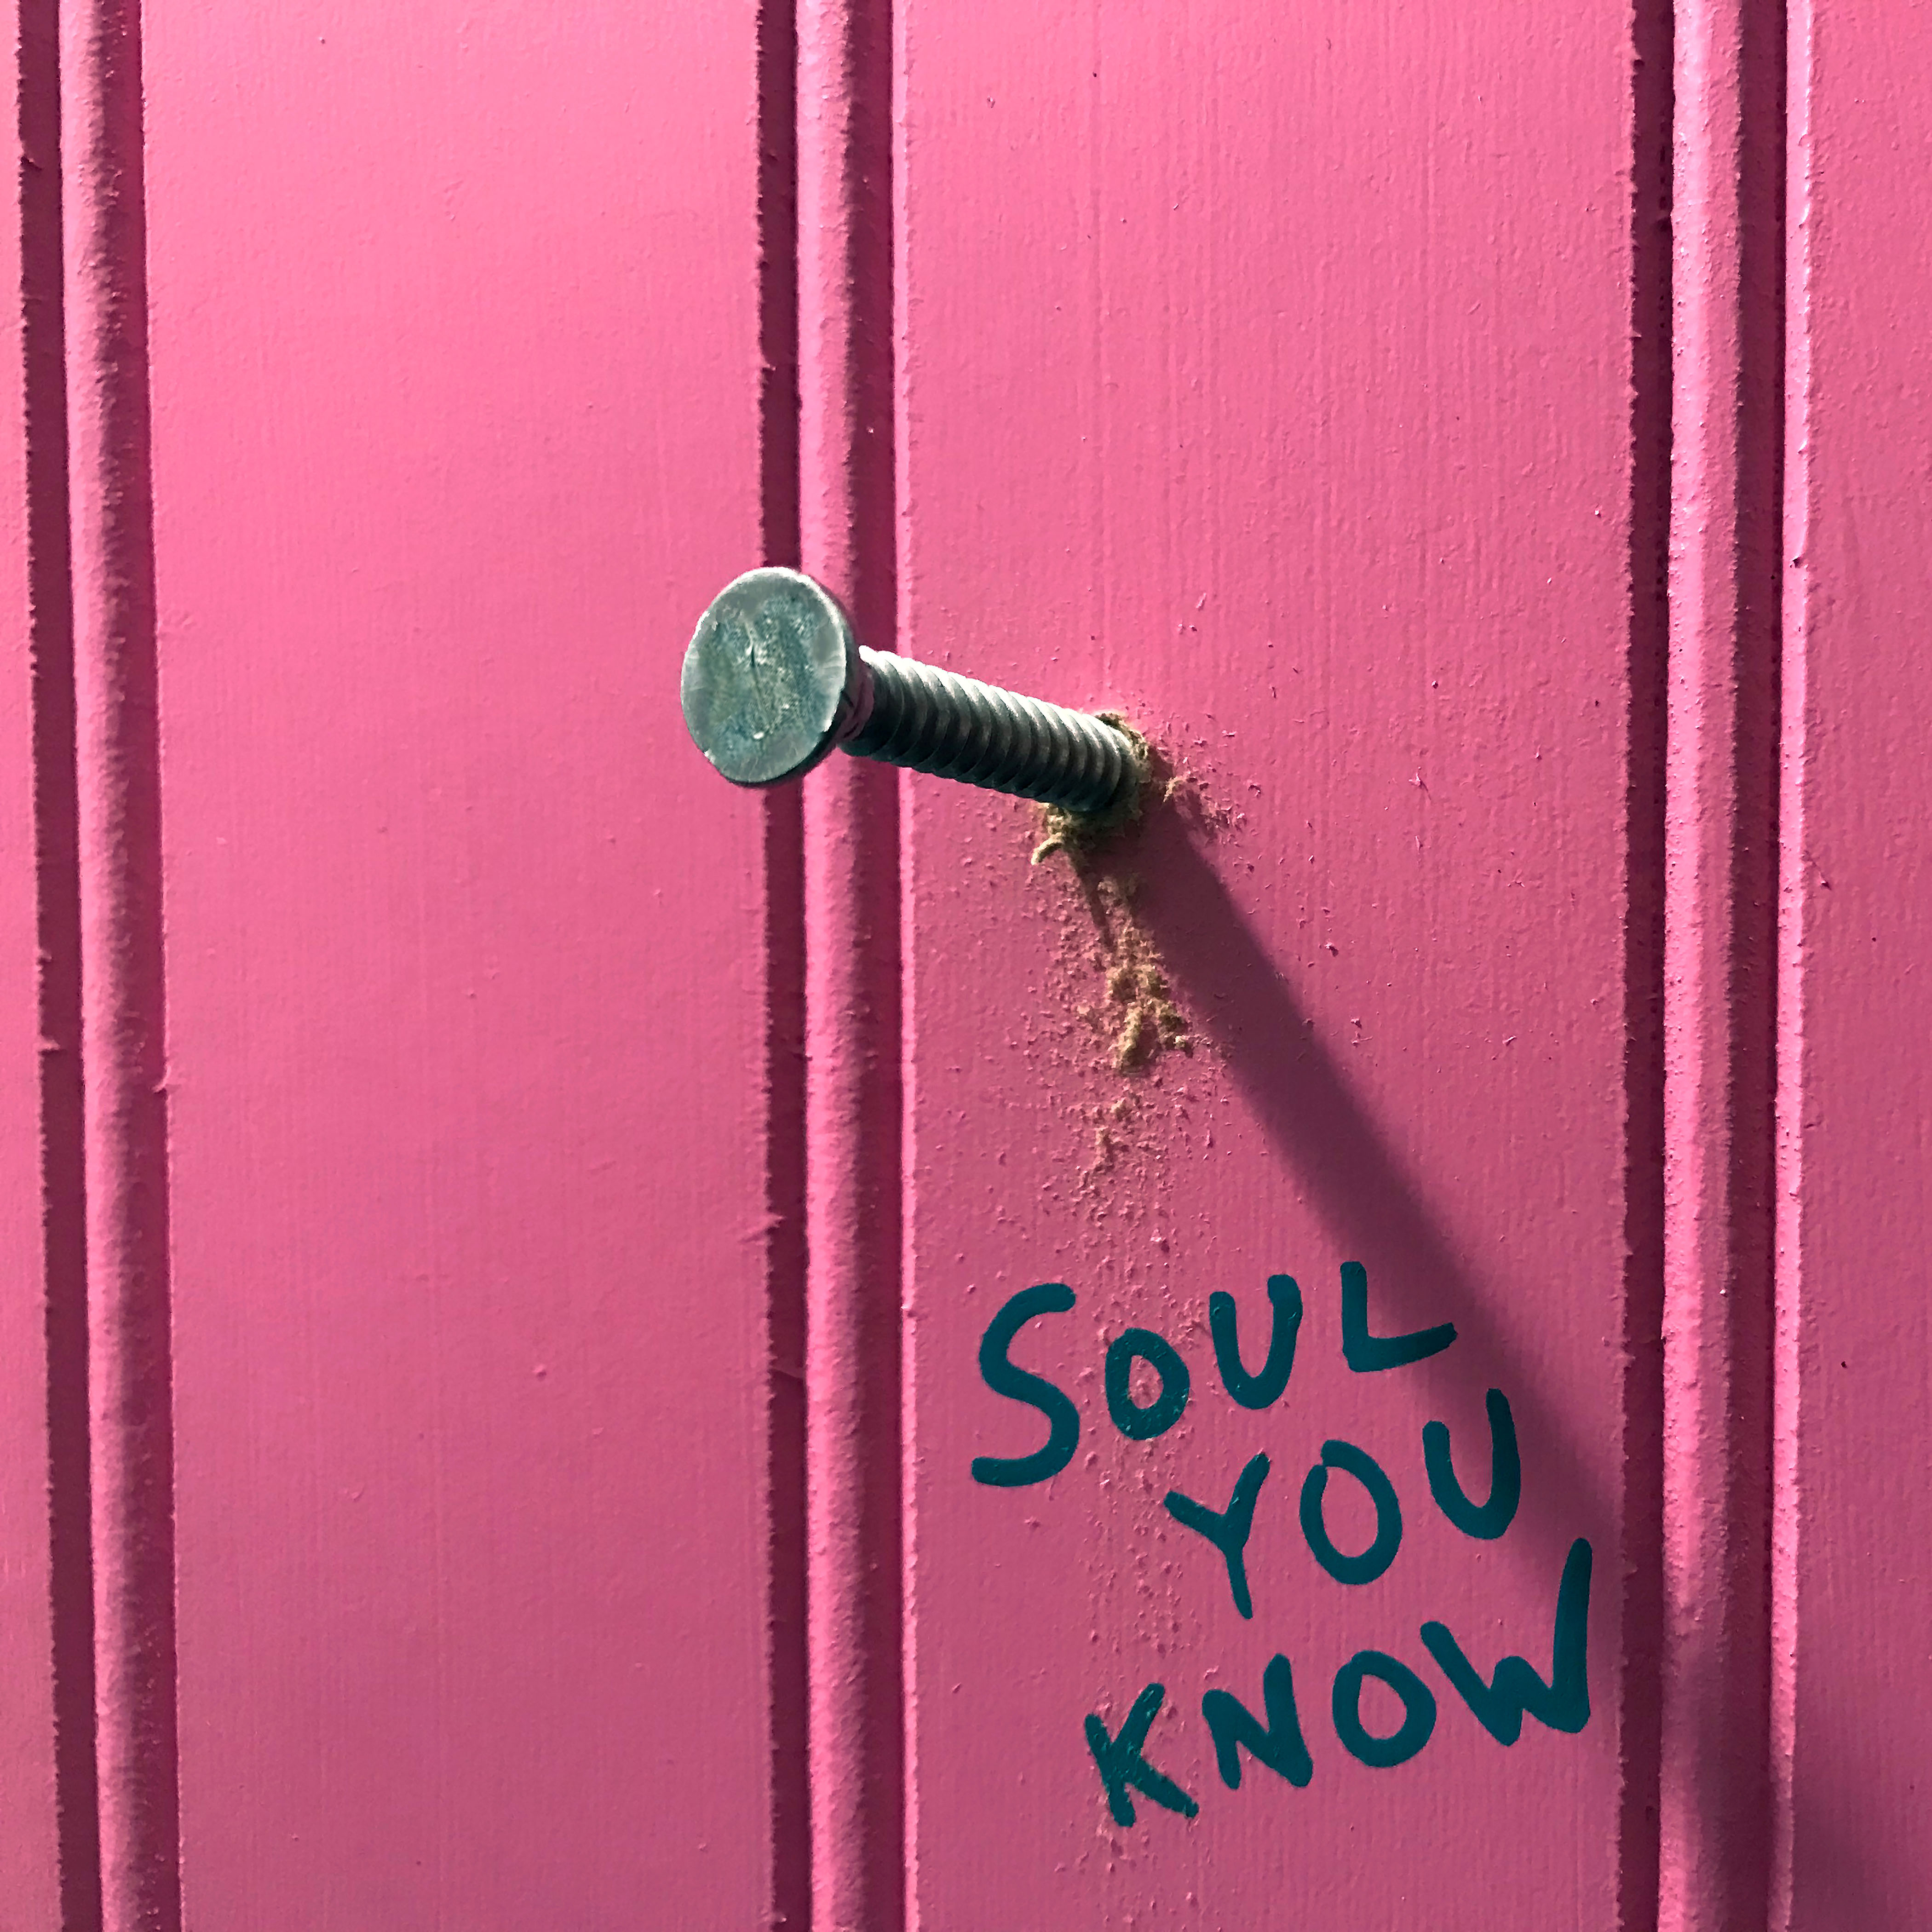 SOUL
YOU
KNOW